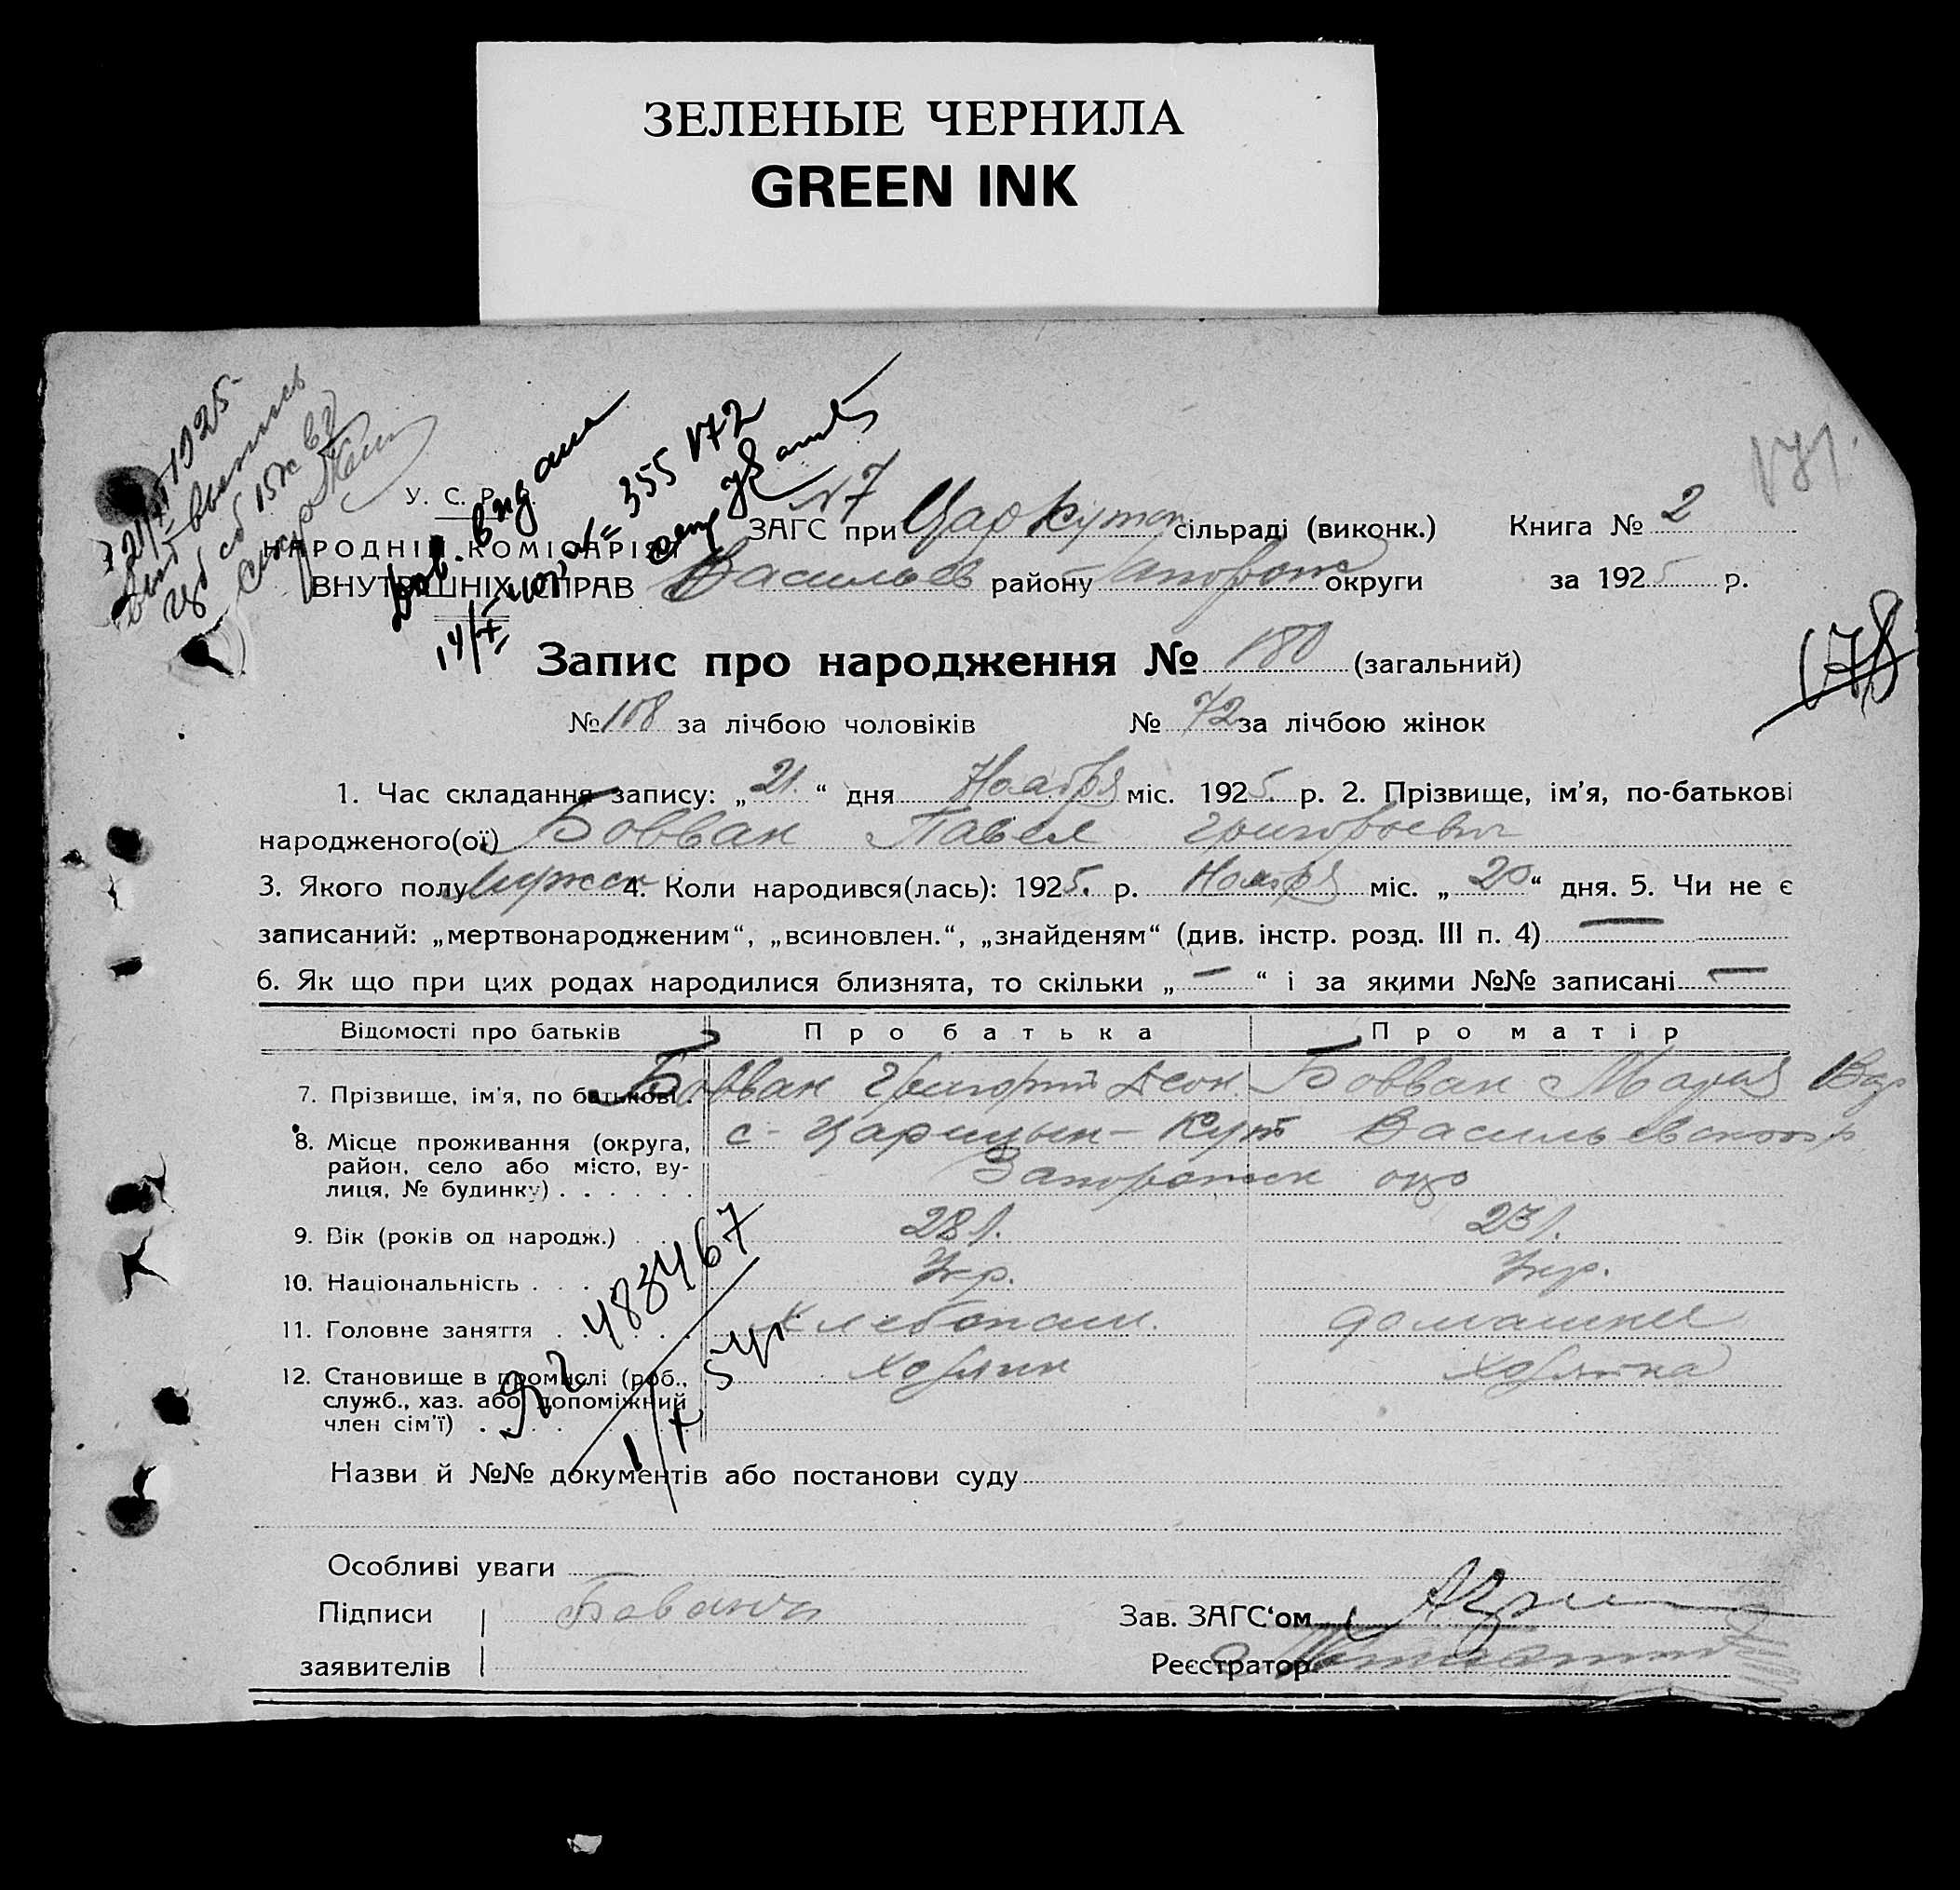 ЗЕЛЕНЫЕ ЧЕРНИЛА
GREEN INK
У. С. Р. Р.
НАРОДНІЙ КОМІСАРІЯТ
ВНУТРІШНІХ СПРАВ
видана
355172
14/X
№7
ЗАГС при Цар Кутск сільраді (виконк.) Книга № 2
Васильев району Запорож округи за 1925 р.
Запис про народження № 180 (загальний)
178
№ 108 за лічбою чоловіків № 72 за лічбою жінок
1. Час складання запису: „ 21. “ дня Ноября міс. 1925. р. 2. Прізвище, ім’я, по-батькові
народженого(ої) Бовван Павел Григорьевич
3. Якого полу Мужск 4. Коли народився(лась): 1925. р. Ноября міс. „ 20 “ дня. 5. Чи не є
записаний: „мертвонародженим“, „всиновлен.“, „знайденям“ (див. інстр. розд. III п. 4) —
6. Як що при цих родах народилися близнята, то скільки „ — “ і за якими №№ записані —
Відомості про батьків Про батька Про матір
7. Прізвище, ім’я, по батькові . Бовван Григорий Бовван Мария
8. Місце проживання (округа, район, село або місто, вулиця, № будинку) . . . . . .
с- Царицын- Кут Васильевского р
Запорожск окр
9. Вік (років од народж.) . . 28 л. 23 л.
10. Національність . . . . Укр. Укр.
11. Головне заняття . . . . Хлебопаш. домашняя
12. Становище в промислі (роб., служб., хаз. або допоміжний член сім’ї) . . . . хозяин хозяйка
483467
Назви й №№ документів або постанови суду
Особливі уваги
Підписи
заявителів
Зав. ЗАГС‘ом
Реєстратор